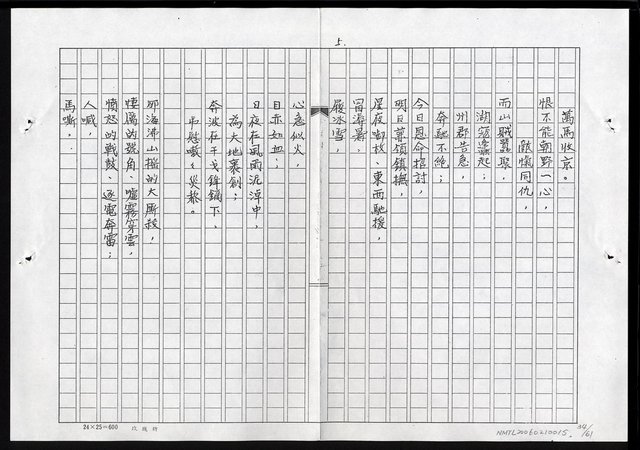 5.
萬馬收京。
恨不能朝野一心，
敵愾同仇，
而山賊蠭聚，
湖寇遙起；
州郡告急，
奔馳不絕；
今日恩命招討，
明日尊領鎮撫，
星夜啣枚、東西馳援，
冒溽暑，
履冰雪，
心急似火，
目赤如血；
日夜在風雨泥淖中，
為大地裹創；
奔波在干戈鋒鏑下，
弔慰嗷嗷災黎。
那海沸山搖的大廝殺，
悽厲的號角、噓霧穿雲，
憤怒的戰鼓、逐電奔雷；
人喊，
馬嘶，
24×25=600
NMTL20060210015
34/61